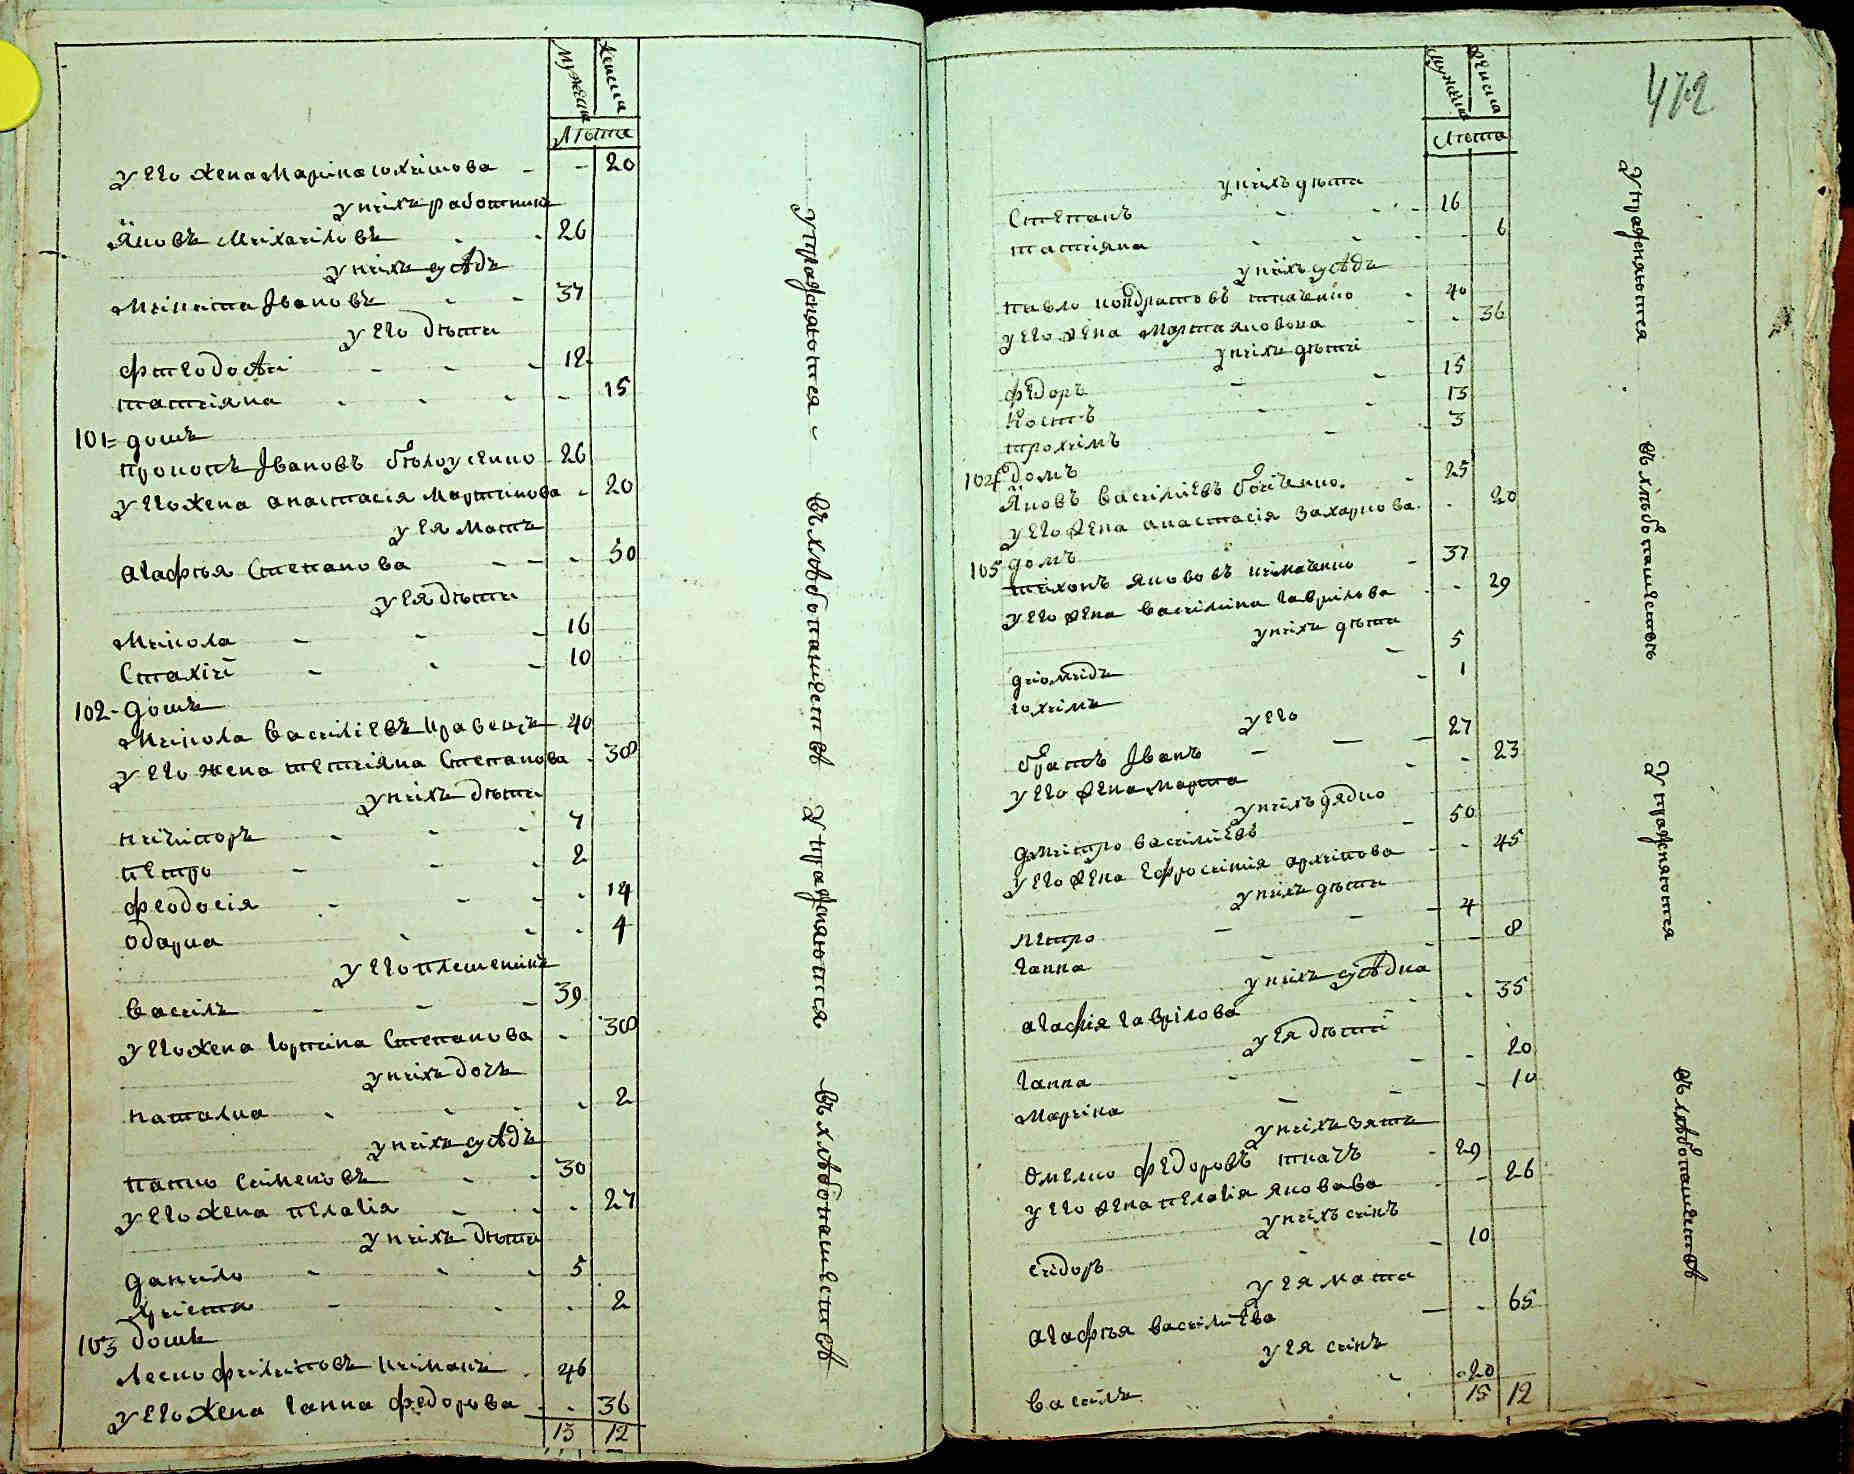 мужеска женска
Лѣта
у его жена Марина юхимова - - 20
у нихъ работникъ
Яковъ Михаиловъ - - 26
у нихъ сусѣдъ
Микита Івановъ - - 37
у его дѣти
Фтеодосѣи - - - 12
татияна - - - - 15
101= домъ
прокопъ Івановъ бѣлоусенко 26
у его жена анастасія Мартинова - 20
у ея мать
агафъя Степанова - - - 50
у ея дѣти
Микола - - - 16
Стахіи - - - 10
102- домъ
Микола василіевъ кравецъ 40
у его жена тетяна Степанова - 38
у нихъ дѣти
никипоръ - - - 7
петро - - - 2
феодосія - - - - 14
одарка - - - 4
у его племенникъ
василь - - - 39
у его жена іорина Степанова - 38
у нихъ дочъ
наталка - - - - 2
у нихъ сусѣдъ
пацко Семеновъ - - 30
у его жена пелагія - - - 27
у нихъ дѣти
данило - - - 5
христя - - - 2
103 домъ
Леско филиповъ кимакъ - 46
у его жена ганна федорова - - 36
13 12
упражняются - въ хлѣбопашествѣ
Упражняются въ хлѣбопашествѣ
472
мужеска женска
Лѣта
у нихъ дѣти
Степанъ - - - 16
татіяна - - - 6
у нихъ сусѣдъ
павло кондратовъ ткаченко - 40
у его жена Марта яковова - - 36
у нихъ дѣти
федоръ - - 15
Костъ - - 13
трохимъ - 3
104 домъ
Яковъ василиевъ бойченко - 25
у его жена анастасія захаркова - 20
105 домъ
тихонъ яковъ кимаченко - 37
у его жена василина гаврилова - - 29
у нихъ дѣти
диомидъ - 5
юхимъ - 1
у его
братъ Іванъ - - - 27
у его жена марта - - 23
у нихъ дядко
дмитро василиевъ - 50
у его жена ефросиния архипова - - 45
у нихъ дѣти
петро - - - 4
ганна - - - 8
у нихъ сусѣдка
агафия гаврілова - - 35
у ея дѣти
ганна - - - 20
Марина - - - 10
у нихъ зять
омелко федоровъ ткачъ - 29
у его жена пелагія яковова - - 26
у нихъ синъ
сидоръ - - 10
у ея мати
агафъя василиева - - 65
у ея синъ
василь - 20
15 12
Упражняются въ хлѣбопашествѣ
Упражняются въ хлѣбопашествѣ